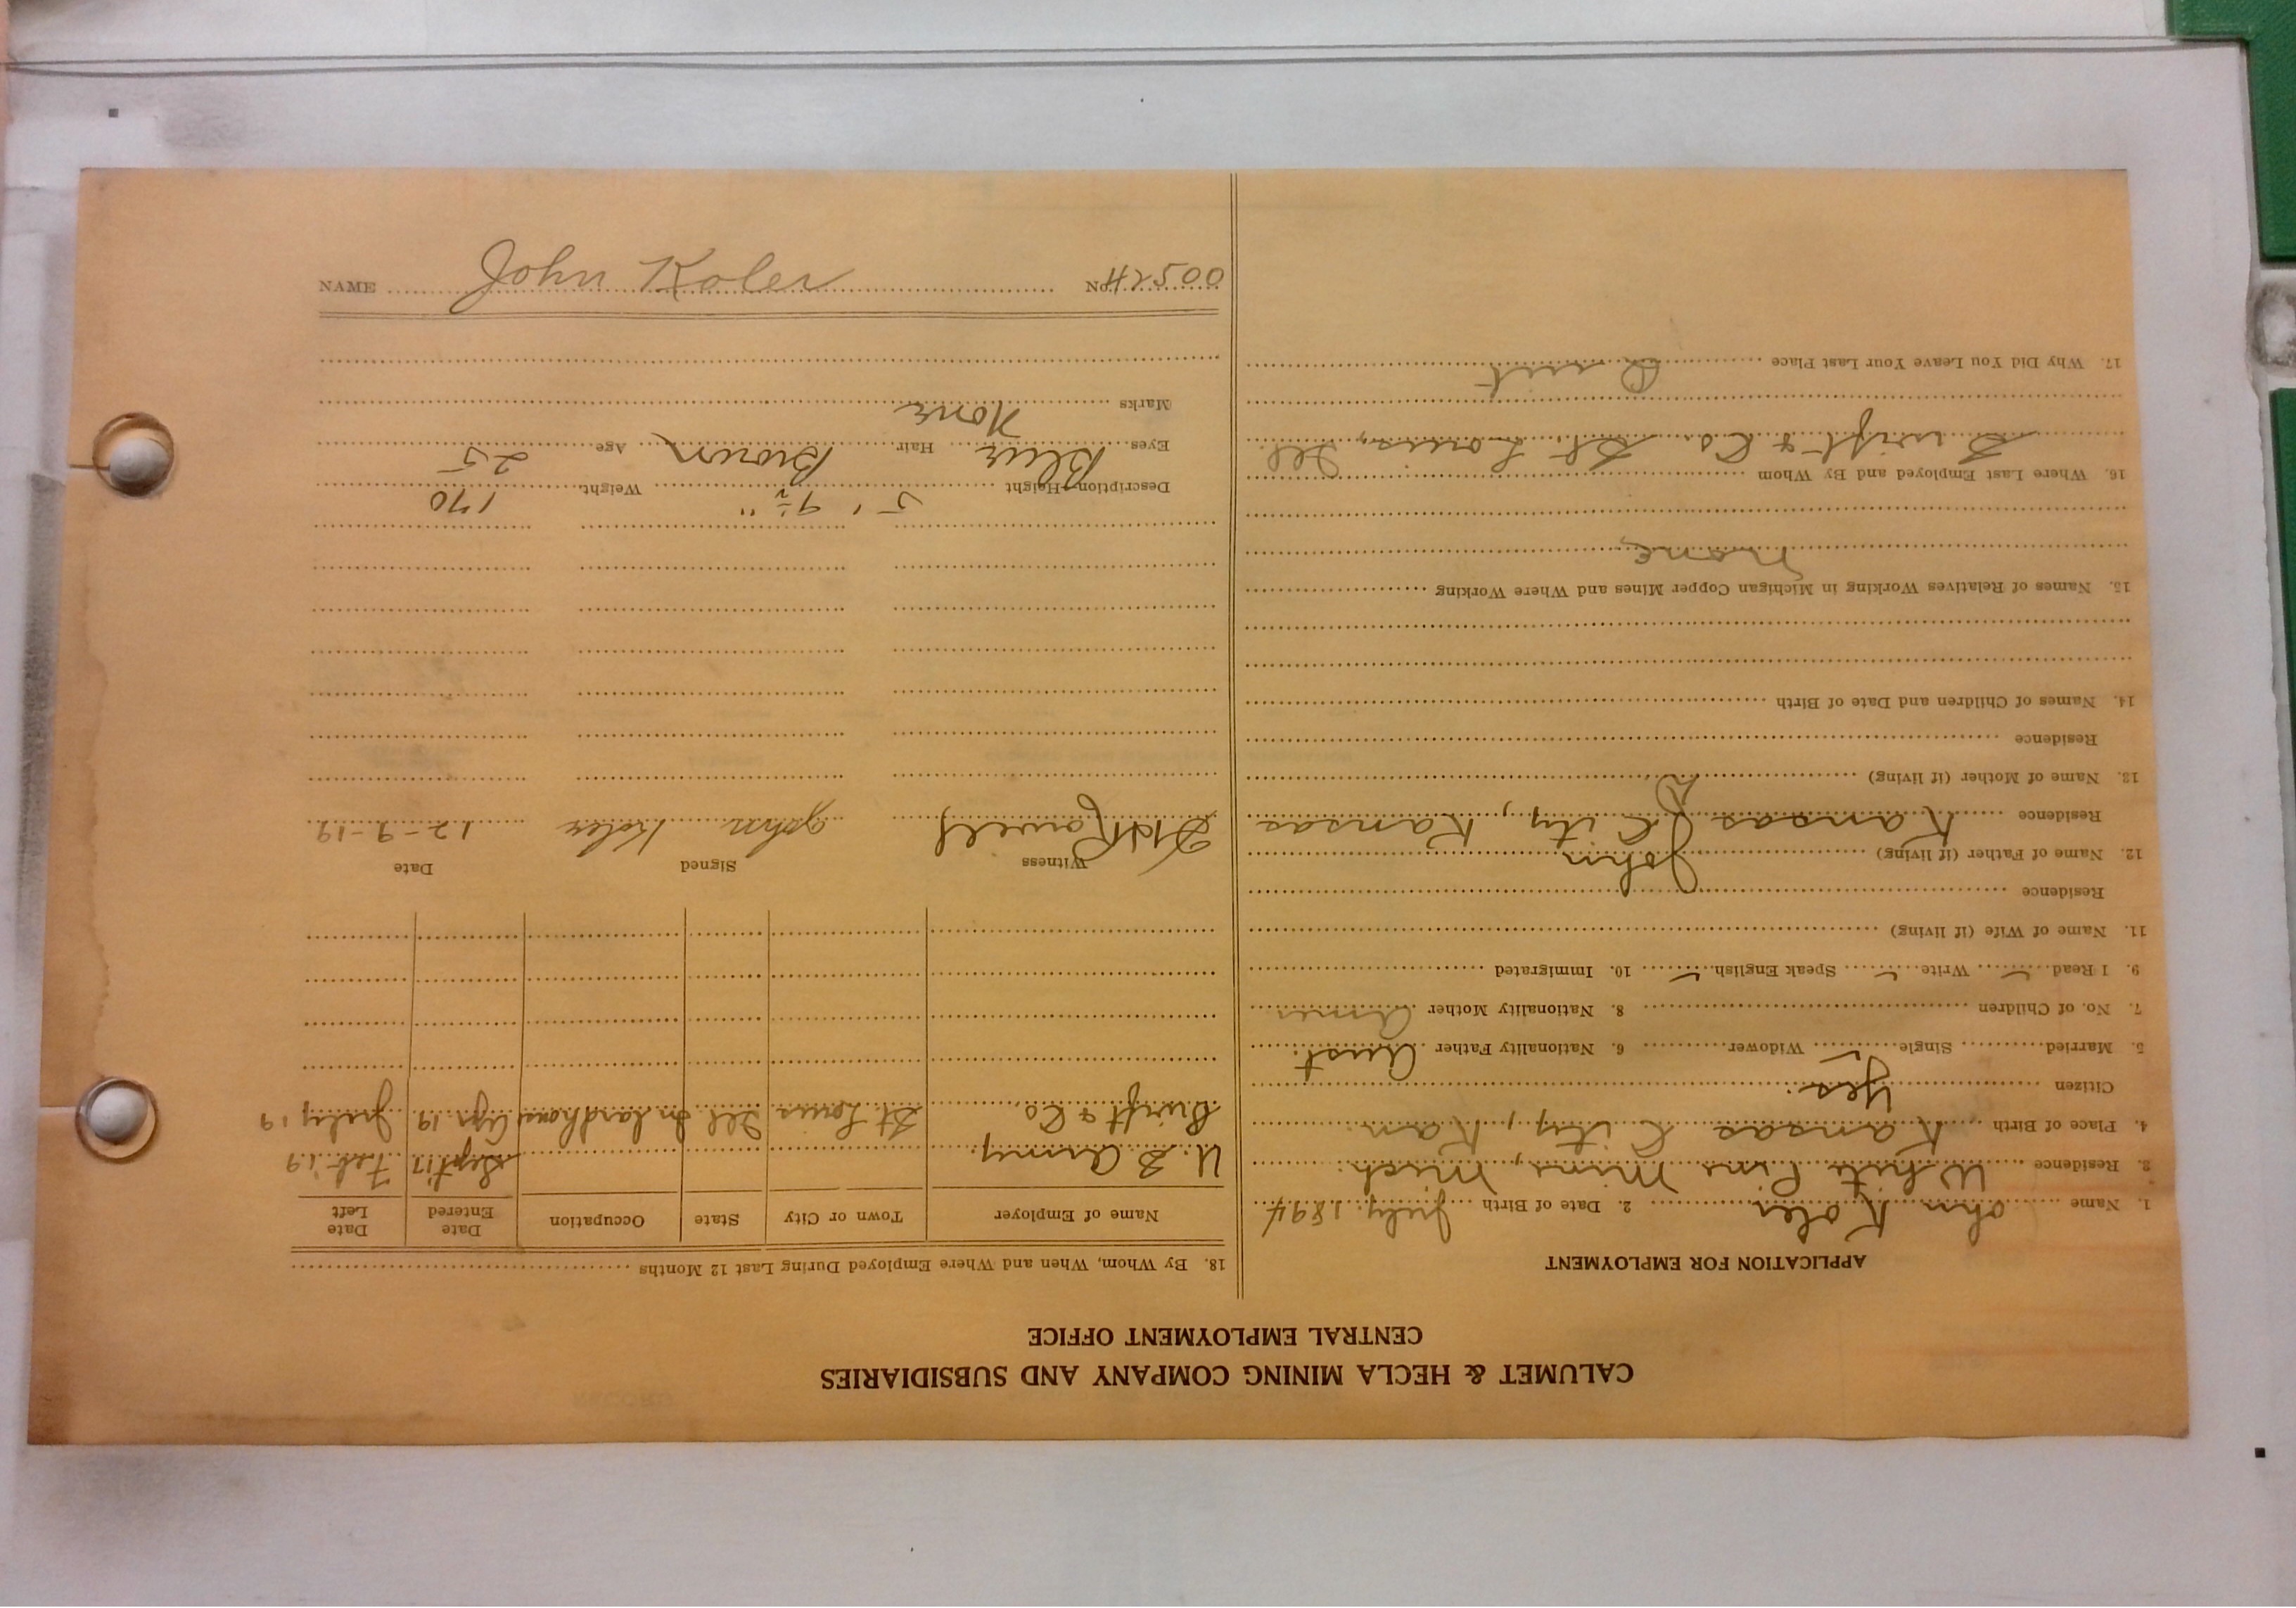 CALUMET & HECLA MINING COMPANY AND SUBSIDIARIES
CENTRAL EMPLOYMENT OFFICE
APPLICATION FOR EMPLOYMENT
1. Name John Koler 2. Date of Birth July 1894
3. Residence White Pine Mine, Mich.
4. Place of Birth Kansas City, Kan.
Citizen Yes.
5. Married Single ✓ Widower 6. Nationality Father Aust.
7. No. of Children 8. Nationality Mother Amer.
9. I Read ✓ Write ✓ Speak English ✓ 10. Immigrated
11. Name of Wife (if living)
Residence
12. Name of Father (if living) John
Residence Kansas City, Kansas
13. Name of Mother (if living) D
Residence
14. Names of Children and Date of Birth
15. Names of Relatives Working in Michigan Copper Mines and Where Working
None
16. Where Last Employed and By Whom
Swift & Co. St. Louis, Ill.
17. Why Did You Leave Your Last Place Quit
18. By Whom, When and Where Employed During Last 12 Months
Name of Employer Town or City State Occupation Date Entered Date Left
U. S Army. Sept 17 Feb 19
Swift & Co. St. Louis Ill Apr. 19 July 19
Witness Signed Date
Rowell John Koler 12-9-19
Description—Height 5' 9½" Weight 170
Eyes Blue Hair Brown Age 25
Marks None
NAME John Koler No. 42500